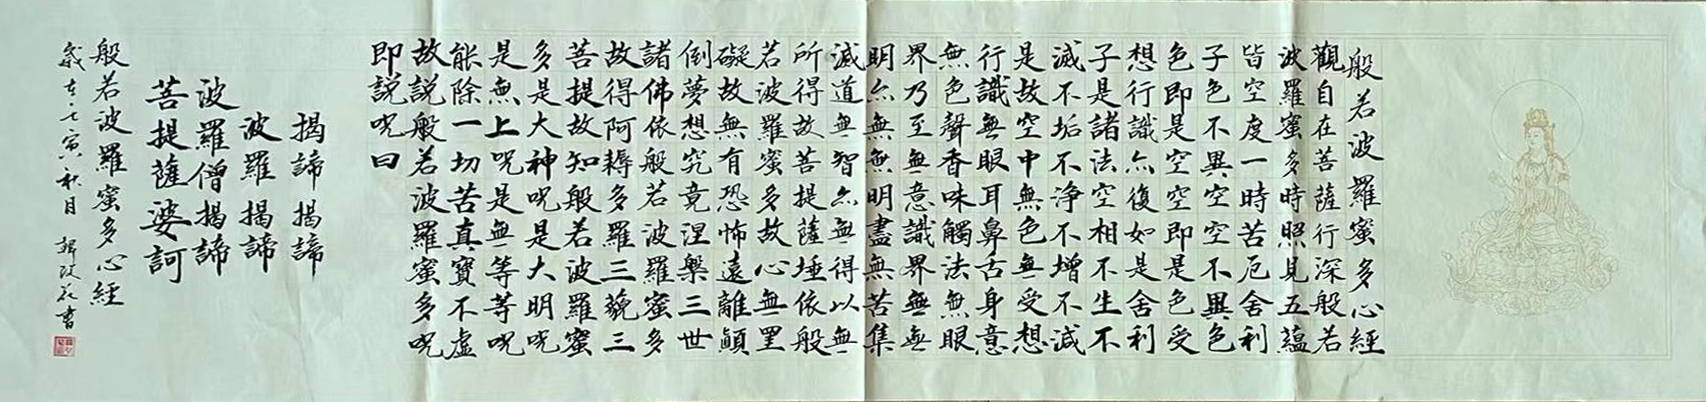 般若波羅蜜多心經
觀自在菩薩行深般若
波羅蜜多時照見五蘊
皆空度一時苦厄舍利
子色不異空空不異色
色即是空空即是色受
想行識亦復如是舍利
子是諸法空相不生不
滅不垢不净不增不減
是故空中無色無受想
行識無眼耳鼻舌身意
無色聲香味觸法無眼
界乃至無意識界無無
明亦無無明盡無苦集
滅道無智亦無得以無
所得故菩提薩埵依般
若波羅蜜多故心無罣
礙故無有恐怖遠離顛
倒夢想究竟涅槃三世
諸佛依般若波羅蜜多
故得阿耨多羅三藐三
菩提故知般若波羅蜜
多是大神呪是大明呪
是無上呪是無等等呪
能除一切苦真實不虛
故説般若波羅蜜多呪
即説呪曰
揭諦揭諦
波羅揭諦
波羅僧揭諦
菩提薩婆訶
般若波羅蜜多心經
歲在壬寅秋月 書